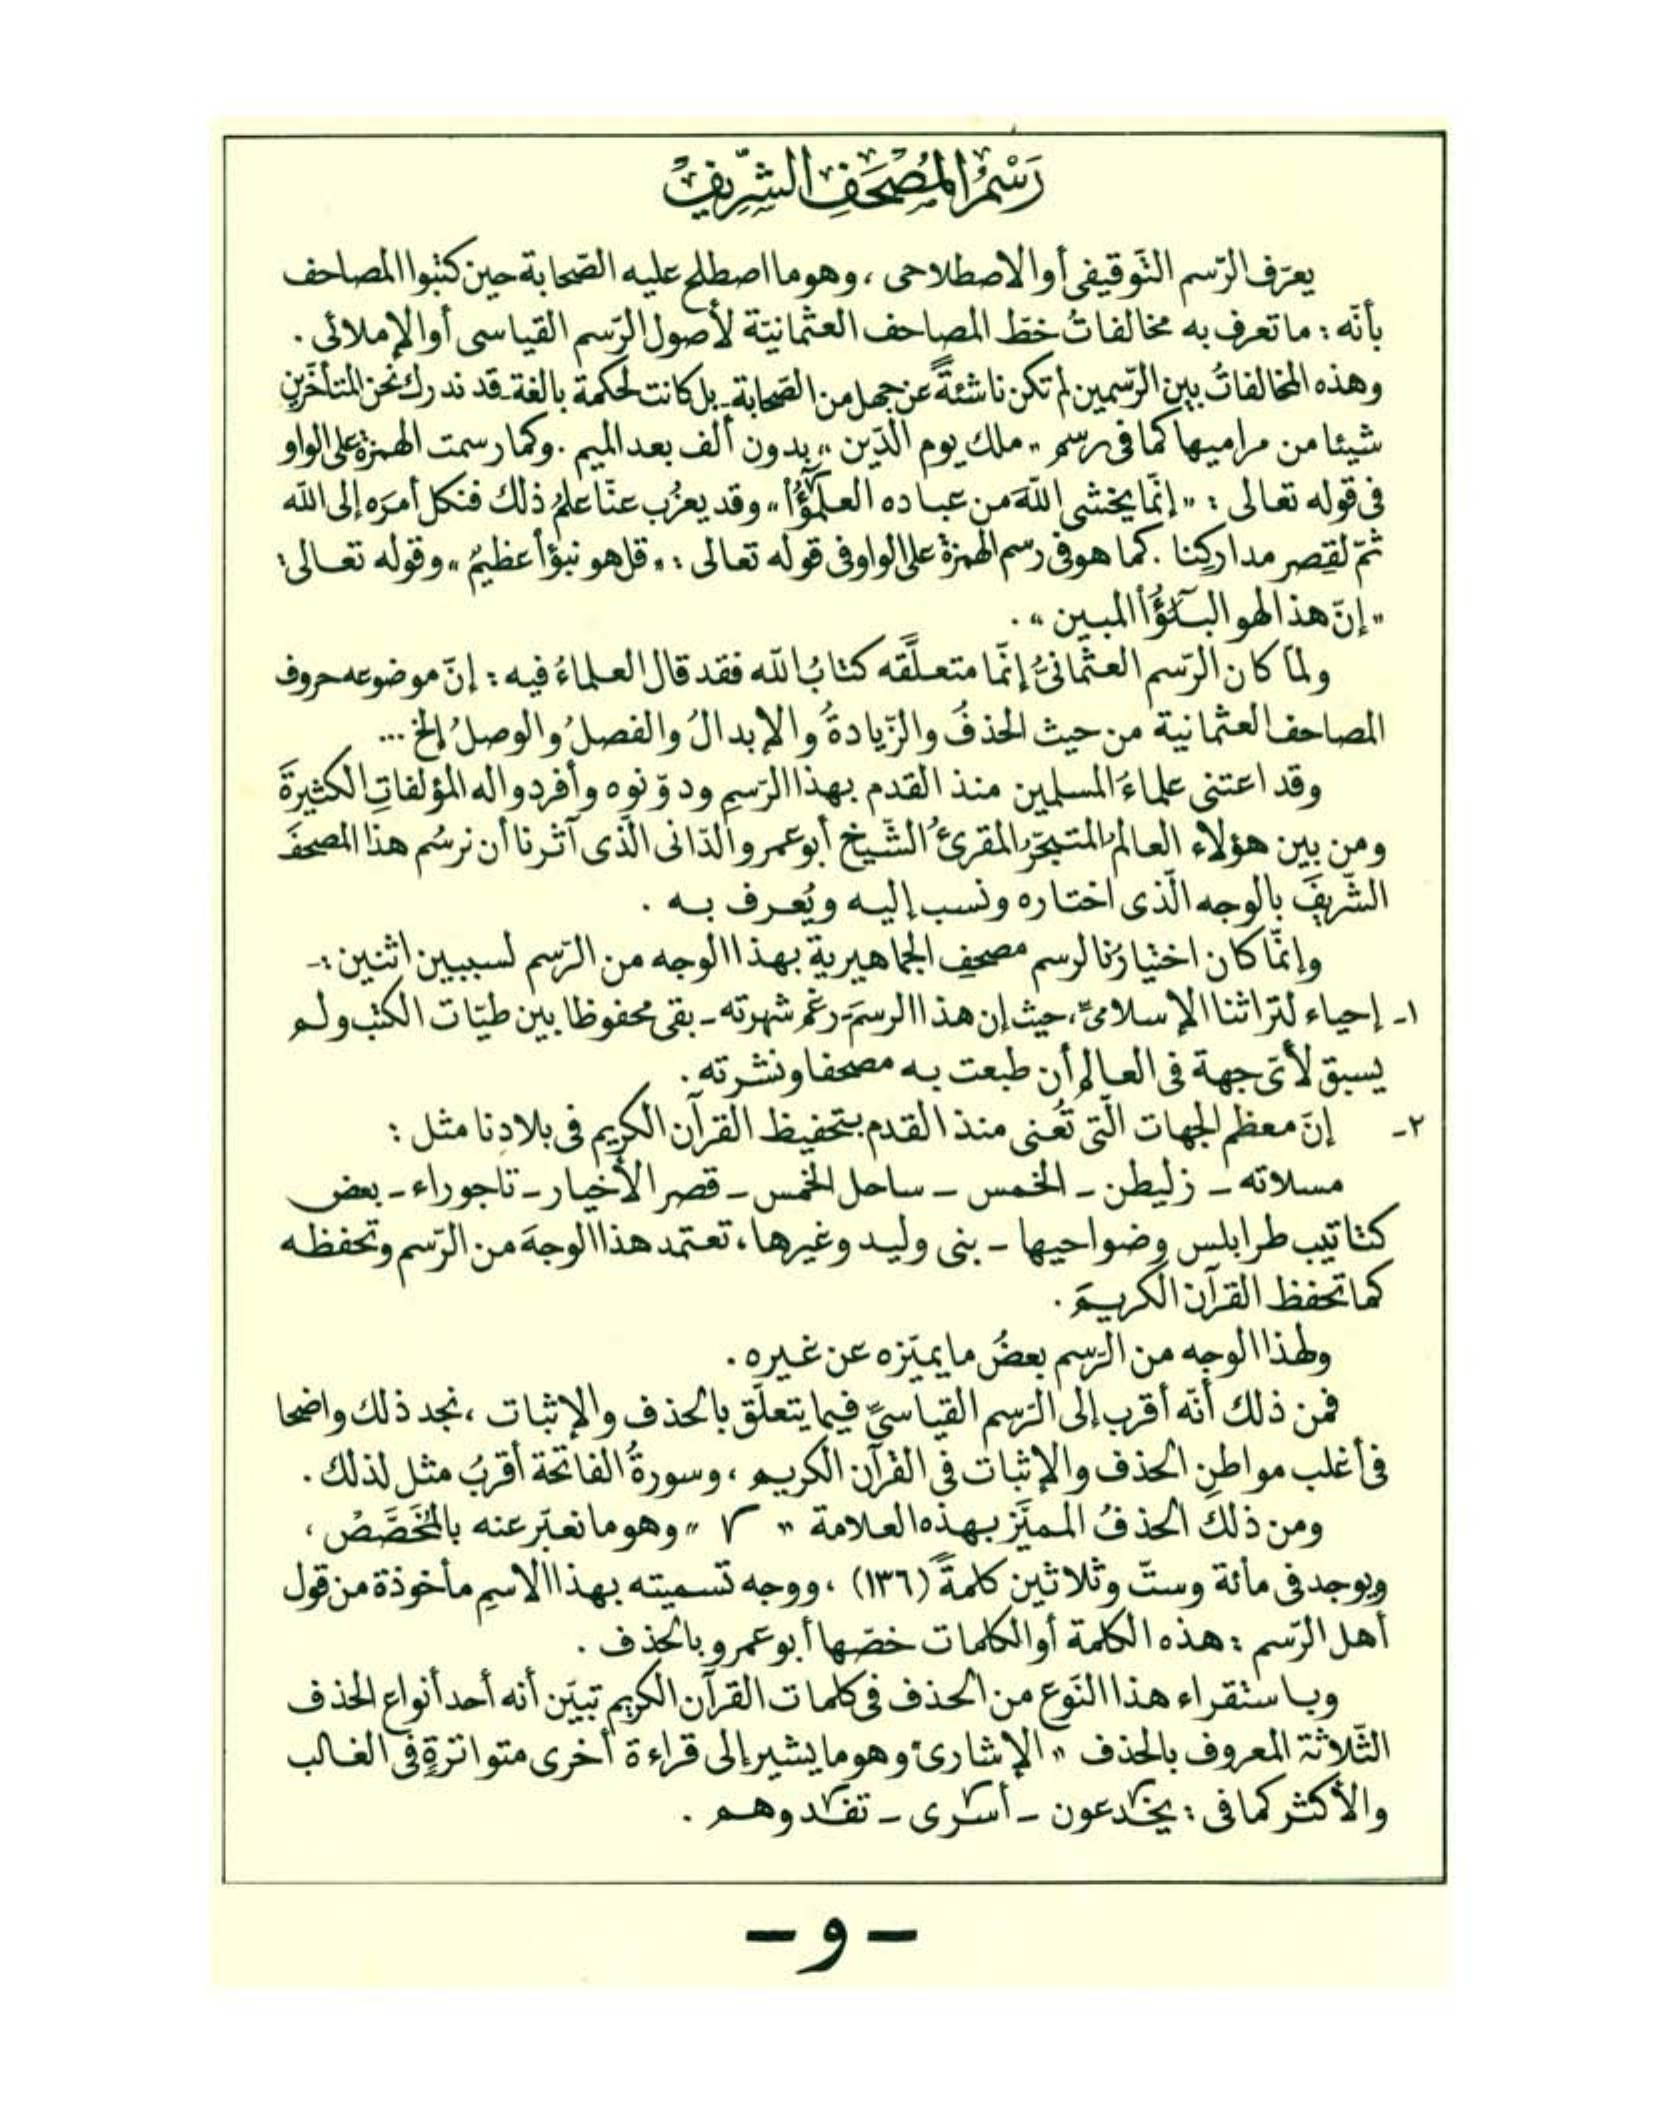 رَسْمُ المُصْحَفِ الشَّرِيفِ
يعرّف الرّسم التّوقيفى أو الاصطلاحى ، وهو ما اصطلح عليه الصّحابة حين كتبوا المصاحف
بأنّه : ما تعرف به مخالفاتُ خطّ المصاحف العثمانيّة لأصول الرّسم القياسى أو الإملائى .
وهذه المخالفاتُ بين الرّسمين لم تكن ناشئةً عن جهل من الصّحابة ـ بل كانت لحكمة بالغة ـ قد ندرك نحن المتأخّرين
شيئا من مراميها كما فى رسم « ملك يوم الدّين » بدون ألف بعد الميم . وكما رسمت الهمزة على الواو
فى قوله تعالى : « إنّما يخشى اللهَ من عباده العلمٰٓؤُا » وقد يعزُب عنّا علمُ ذلك فنكل أمرَه إلى الله
ثمّ لقِصر مداركنا . كما هو فى رسم الهمزة على الواو فى قوله تعالى : « قل هو نبؤأ عظيمٌ » وقوله تعالى :
« إنّ هذا لهو البلٰٓؤُأ المبين » .
ولمّا كان الرّسم العثمانىُّ إنّما متعلَّقه كتابُ الله فقد قال العلماءُ فيه : إنّ موضوعه حروف
المصاحف العثمانية من حيث الحذفُ والزّيادةُ والإبدالُ والفصلُ والوصلُ إلخ ...
وقد اعتنى علماءُ المسلمين منذ القدم بهذا الرّسمِ ودوّنوه وأفردوا له المؤلفاتِ الكثيرةَ
ومن بين هؤلاء العالمُ المتبحّرُ المقرئُ الشّيخ أبو عمرو الدّانى الّذى آثرنا أن نرسُم هذا المصحفَ
الشّريفَ بالوجه الّذى اختاره ونسب إليه ويُعرف به .
وإنّما كان اختيارُنا لرسم مصحفِ الجماهيرية بهذا الوجه من الرّسم لسببين اثنين :ـ
١ـ إحياء لتراثنا الإسلامىّ ، حيث إن هذا الرسمَ ـ رغم شهرته ـ بقى محفوظا بين طيّات الكتب ولم
يسبق لأىّ جهة فى العالم أن طبعت به مصحفا ونشرته .
٢ـ إنّ معظم الجهات الّتى تُعنى منذ القدم بتحفيظ القرآن الكريم فى بلادِنا مثل :
مسلاته ـ زليطن ـ الخمس ـ ساحل الخمس ـ قصر الأخيار ـ تاجوراء ـ بعض
كتاتيب طرابلس وضواحيها ـ بنى وليد وغيرها ، تعتمد هذا الوجهَ من الرّسم وتحفظه
كما تحفظ القرآن الكريمَ .
ولهذا الوجه من الرّسم بعضُ ما يميّزه عن غيره .
فمن ذلك أنّه أقرب إلى الرّسم القياسىّ فيما يتعلّق بالحذف والإثبات ، نجد ذلك واضحا
فى أغلب مواطنِ الحذف والإثبات فى القرآن الكريم ، وسورةُ الفاتحة أقربُ مثل لذلك .
ومن ذلك الحذفُ المميّز بهذه العلامة « » وهو ما نعبّر عنه بالمُخَصَّصْ ،
ويوجد فى مائة وستّ وثلاثين كلمةً (١٣٦) ، ووجه تسميته بهذا الاسمِ مأخوذة من قول
أهل الرّسم : هذه الكلمة أو الكلمات خصّها أبو عمرو بالحذف .
وباستقراء هذا النّوع من الحذف فى كلمات القرآن الكريم تبيّن أنه أحد أنواع الحذف
الثّلاثة المعروف بالحذف « الإشارىّ » وهو ما يشير إلى قراءة أخرى متواترةٍ فى الغالب
والأكثر كما فى : يخدعون ـ أسرى ـ تفدوهم .
ـ و ـ